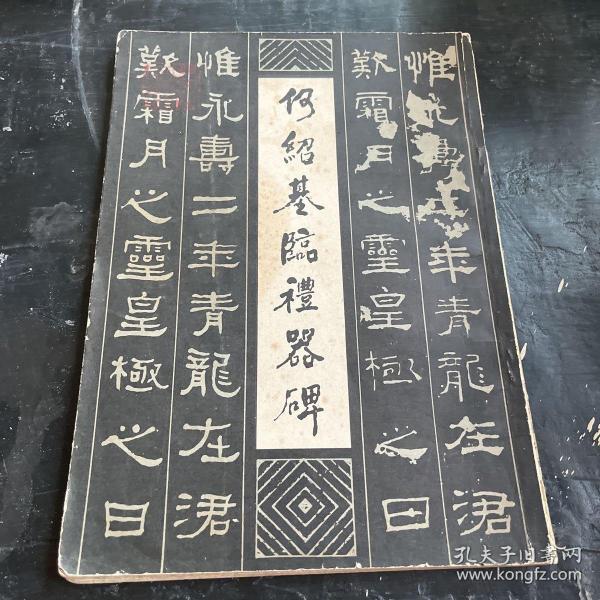 惟永壽二年青龍在涒
歎霜月之靈皇極之日
何紹基臨禮器碑
惟永壽二年青龍在涒
歎霜月之靈皇極之日
孔夫子旧書网
www.kongfz.com